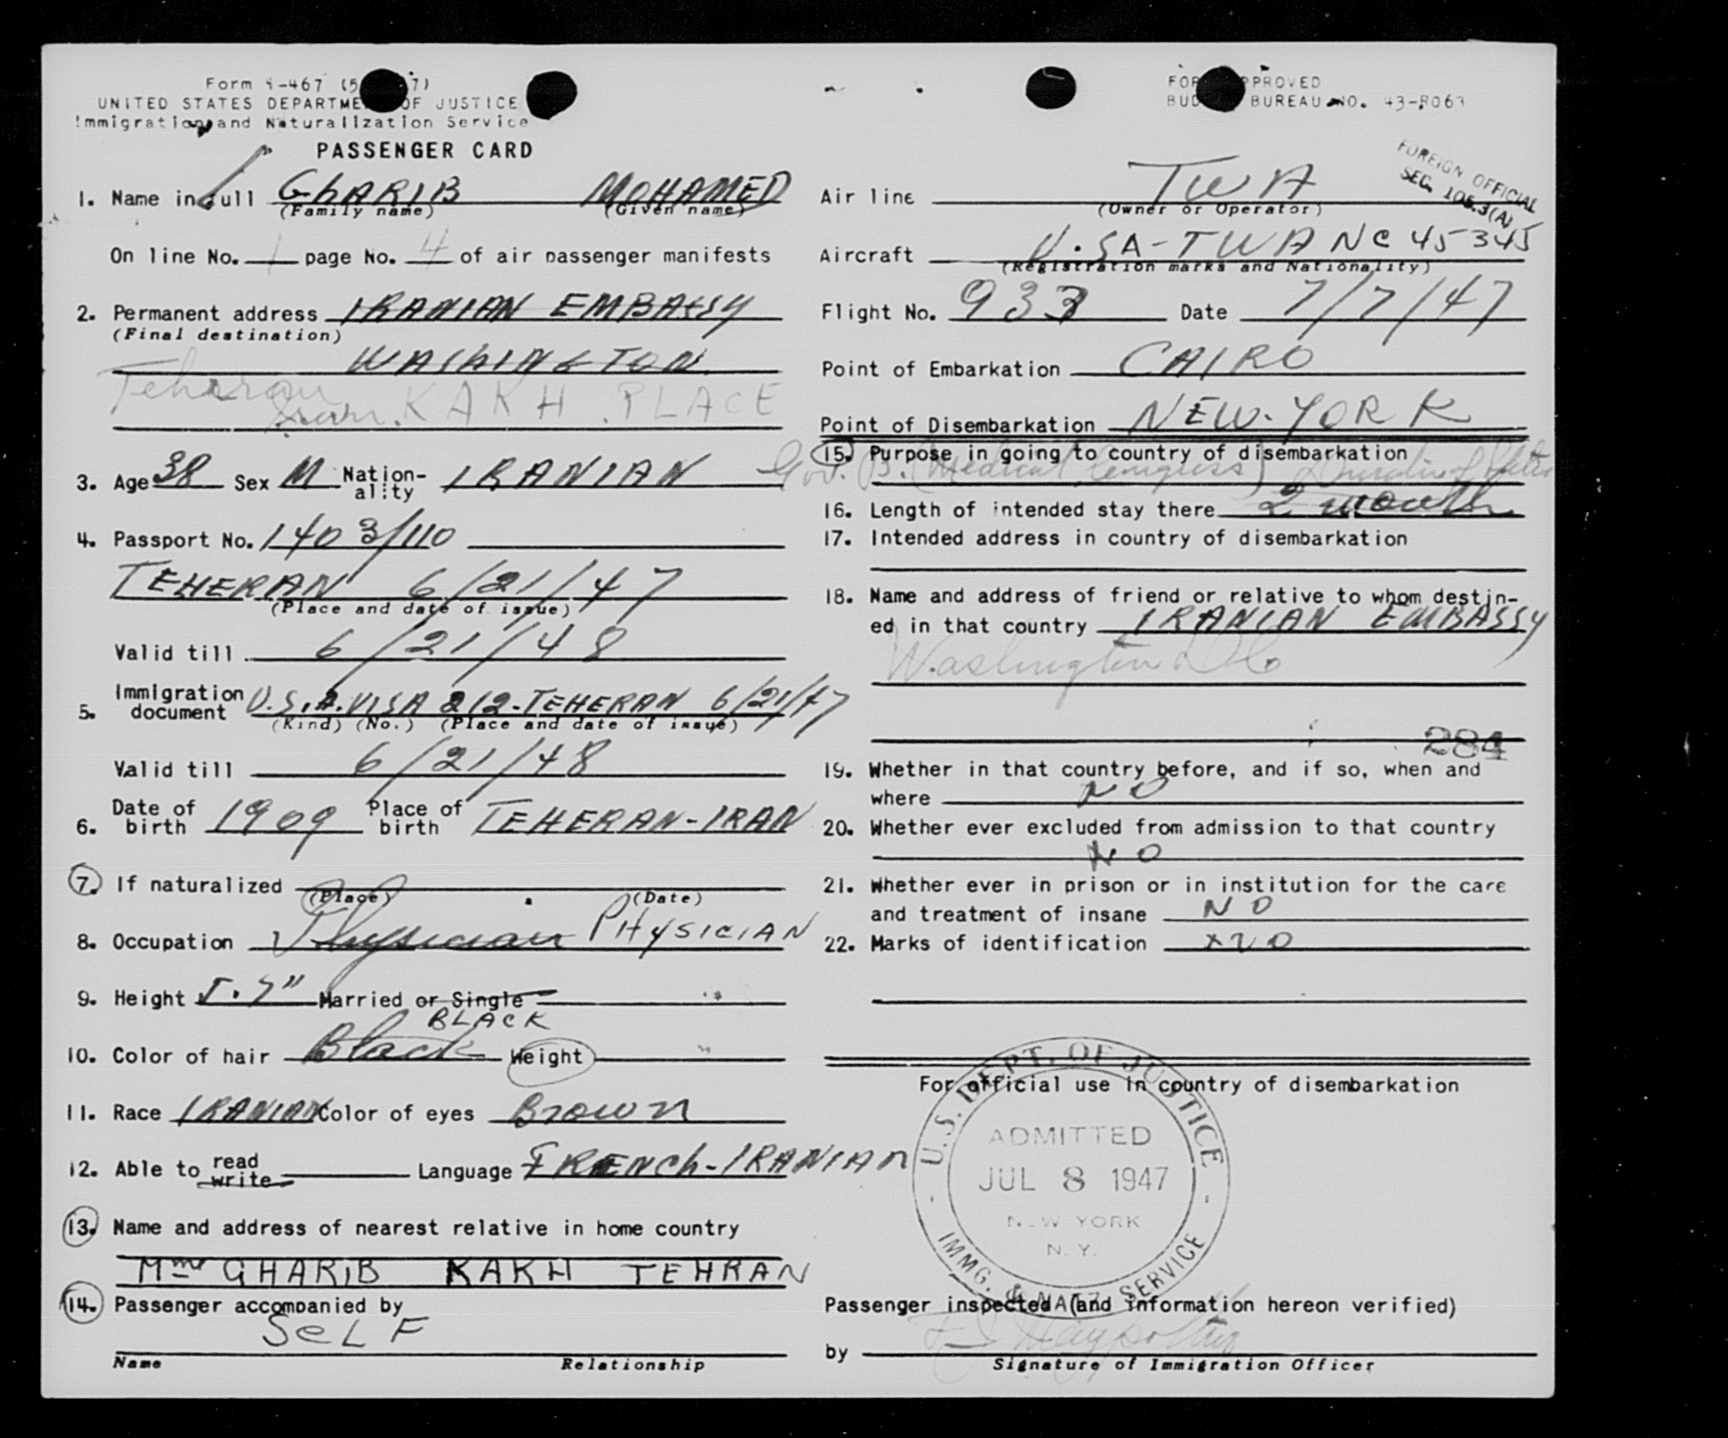 UNITED STATES DEPARTMENT OF JUSTICE
Immigration and Naturalization Service
PASSENGER CARD
BUREAU NO.
1. Name in full GhARIB MOHAMED
(Family name) (Given name)
On line No. 1 page No. 4 of air passenger manifests
2. Permanent address IRANIAN EMBASSY
(Final destination)
WAShINGTON
Teheran KAKH. PLACE
3. Age 38 Sex M Nation-ality IRANIAN
4. Passport No. 1403/110
TEHERAN 6/21/47
(Place and date of issue)
Valid till 6/21/48
5. Immigration document U.S.A. VISA 212-TEHERAN 6/21/47
(Kind) (No.) (Place and date of issue)
Valid till 6/21/48
6. Date of birth 1909 Place of birth TEHERAN-IRAN
7. If naturalized
(Place) (Date)
8. Occupation Physician PHYSICIAN
9. Height 5.7" Married or Single
BLACK
10. Color of hair Black Weight
11. Race IRANIAN Color of eyes Brown
12. Able to read write Language FRENCh-IRANIAN
13. Name and address of nearest relative in home country
Mme GHARIB KAKH TEHRAN
14. Passenger accompanied by
SeLF
Name Relationship
FOREIGN OFFICIAL
SEC. 105.3(A)
Air line TWA
(Owner or Operator)
Aircraft U.SA-TWA NC 45345
(Registration marks and Nationality)
Flight No. 933 Date 7/7/47
Point of Embarkation CAIRO
Point of Disembarkation NEW-YORK
15. Purpose in going to country of disembarkation
Gov. B. (Medical Congress)
16. Length of intended stay there 2 month
17. Intended address in country of disembarkation
18. Name and address of friend or relative to whom destin-
ed in that country IRANIAN EMBASSY
Washington DC
284
19. Whether in that country before, and if so, when and
where NO
20. Whether ever excluded from admission to that country
NO
21. Whether ever in prison or in institution for the care
and treatment of insane NO
22. Marks of identification NO
For official use in country of disembarkation
U.S. DEPT. OF JUSTICE
ADMITTED
JUL 8 1947
NEW YORK
N.Y.
IMMG. & NATZ. SERVICE
Passenger inspected (and information hereon verified)
by
Signature of Immigration Officer